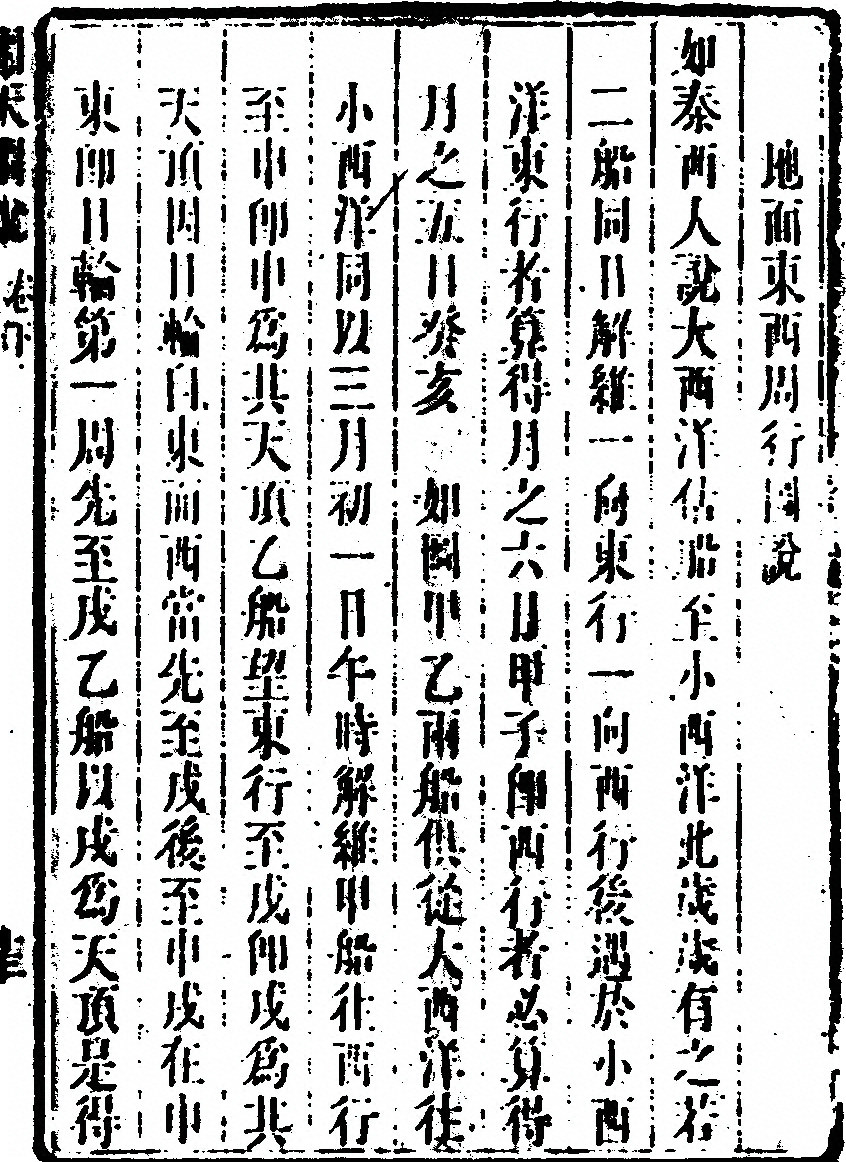 地面東西周行圖說
如泰西人說大西洋估船至小西洋此歲歲有之若
二船同日解維一向東行一向西行後遇於小西
洋東行者算得月之六日甲子卽西行者必算得
月之五日癸亥 如圖甲乙兩船俱從大西洋徃
小西洋同以三月初一日午時解維甲船徃西行
至申卽申爲其天頂乙船望東行至戊卽戊爲其
天頂因日輪自東而西常先至戊後至申戊在申
東卽日輪第一周先至戊乙船以戊爲天頂是得